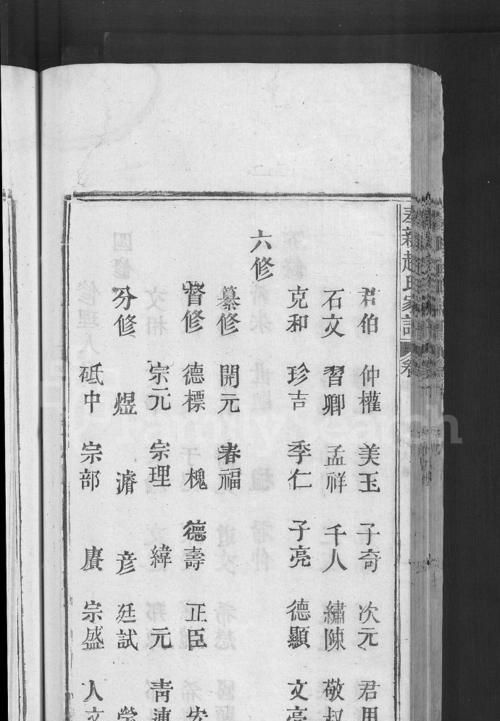 奉新趙氏家譜
君伯 仲權 美玉 子奇 次元 君用
石文 習卿 孟祥 千人 繡陳 敬叔
克和 珍吉 季仁 子亮 德顯 文亮
六修
纂修 開元 春福
督修 德標 槐 德壽 正臣
宗元 宗理 緯 元 青連
分修 煜 濬 彥 廷試
砥中 宗部 賡 宗盛 人文